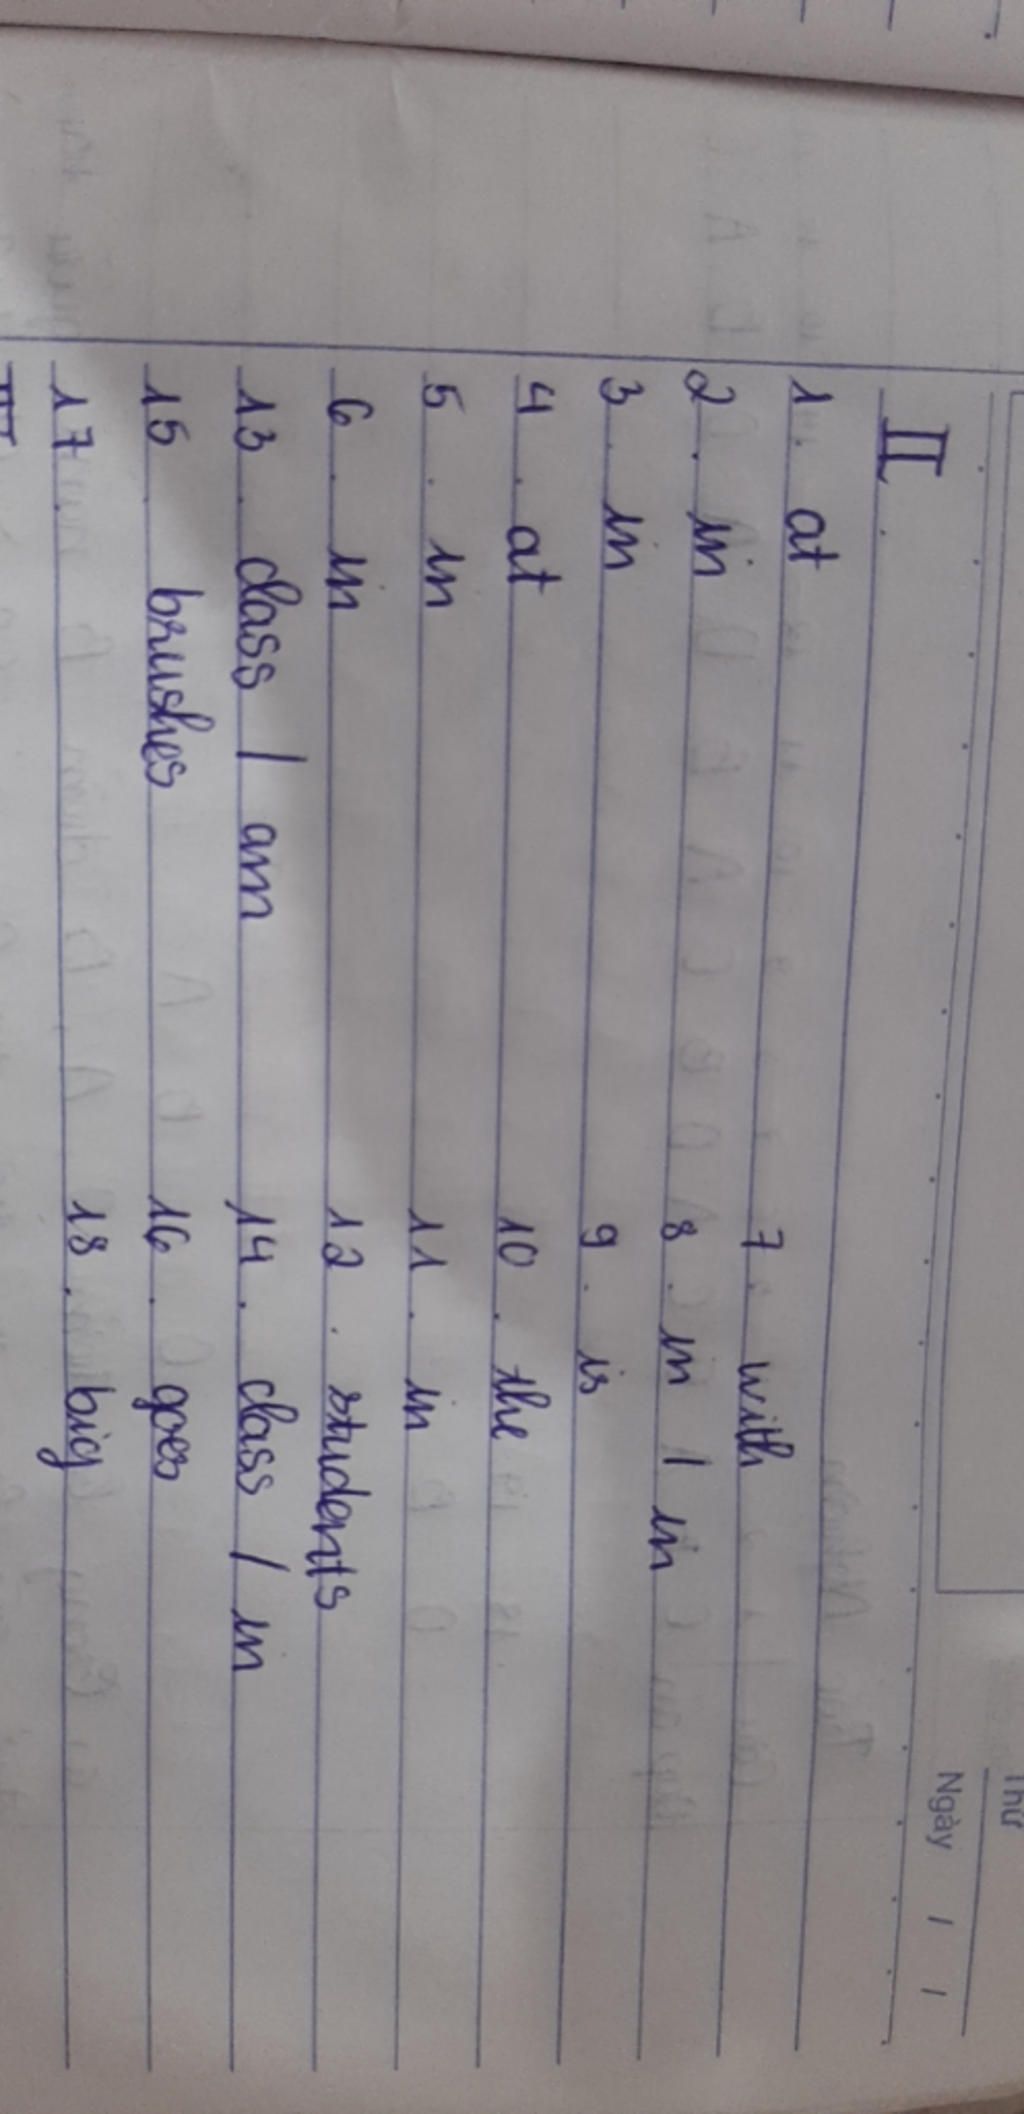 Thứ
Ngày / /
II.
1. at 7. with
2. in 8. in / in
3. in 9. is
4. at 10. the
5. in 11. in
6. in 12. students
13. class / am 14. class / in
15. brushes 16. goes
17. 18. big